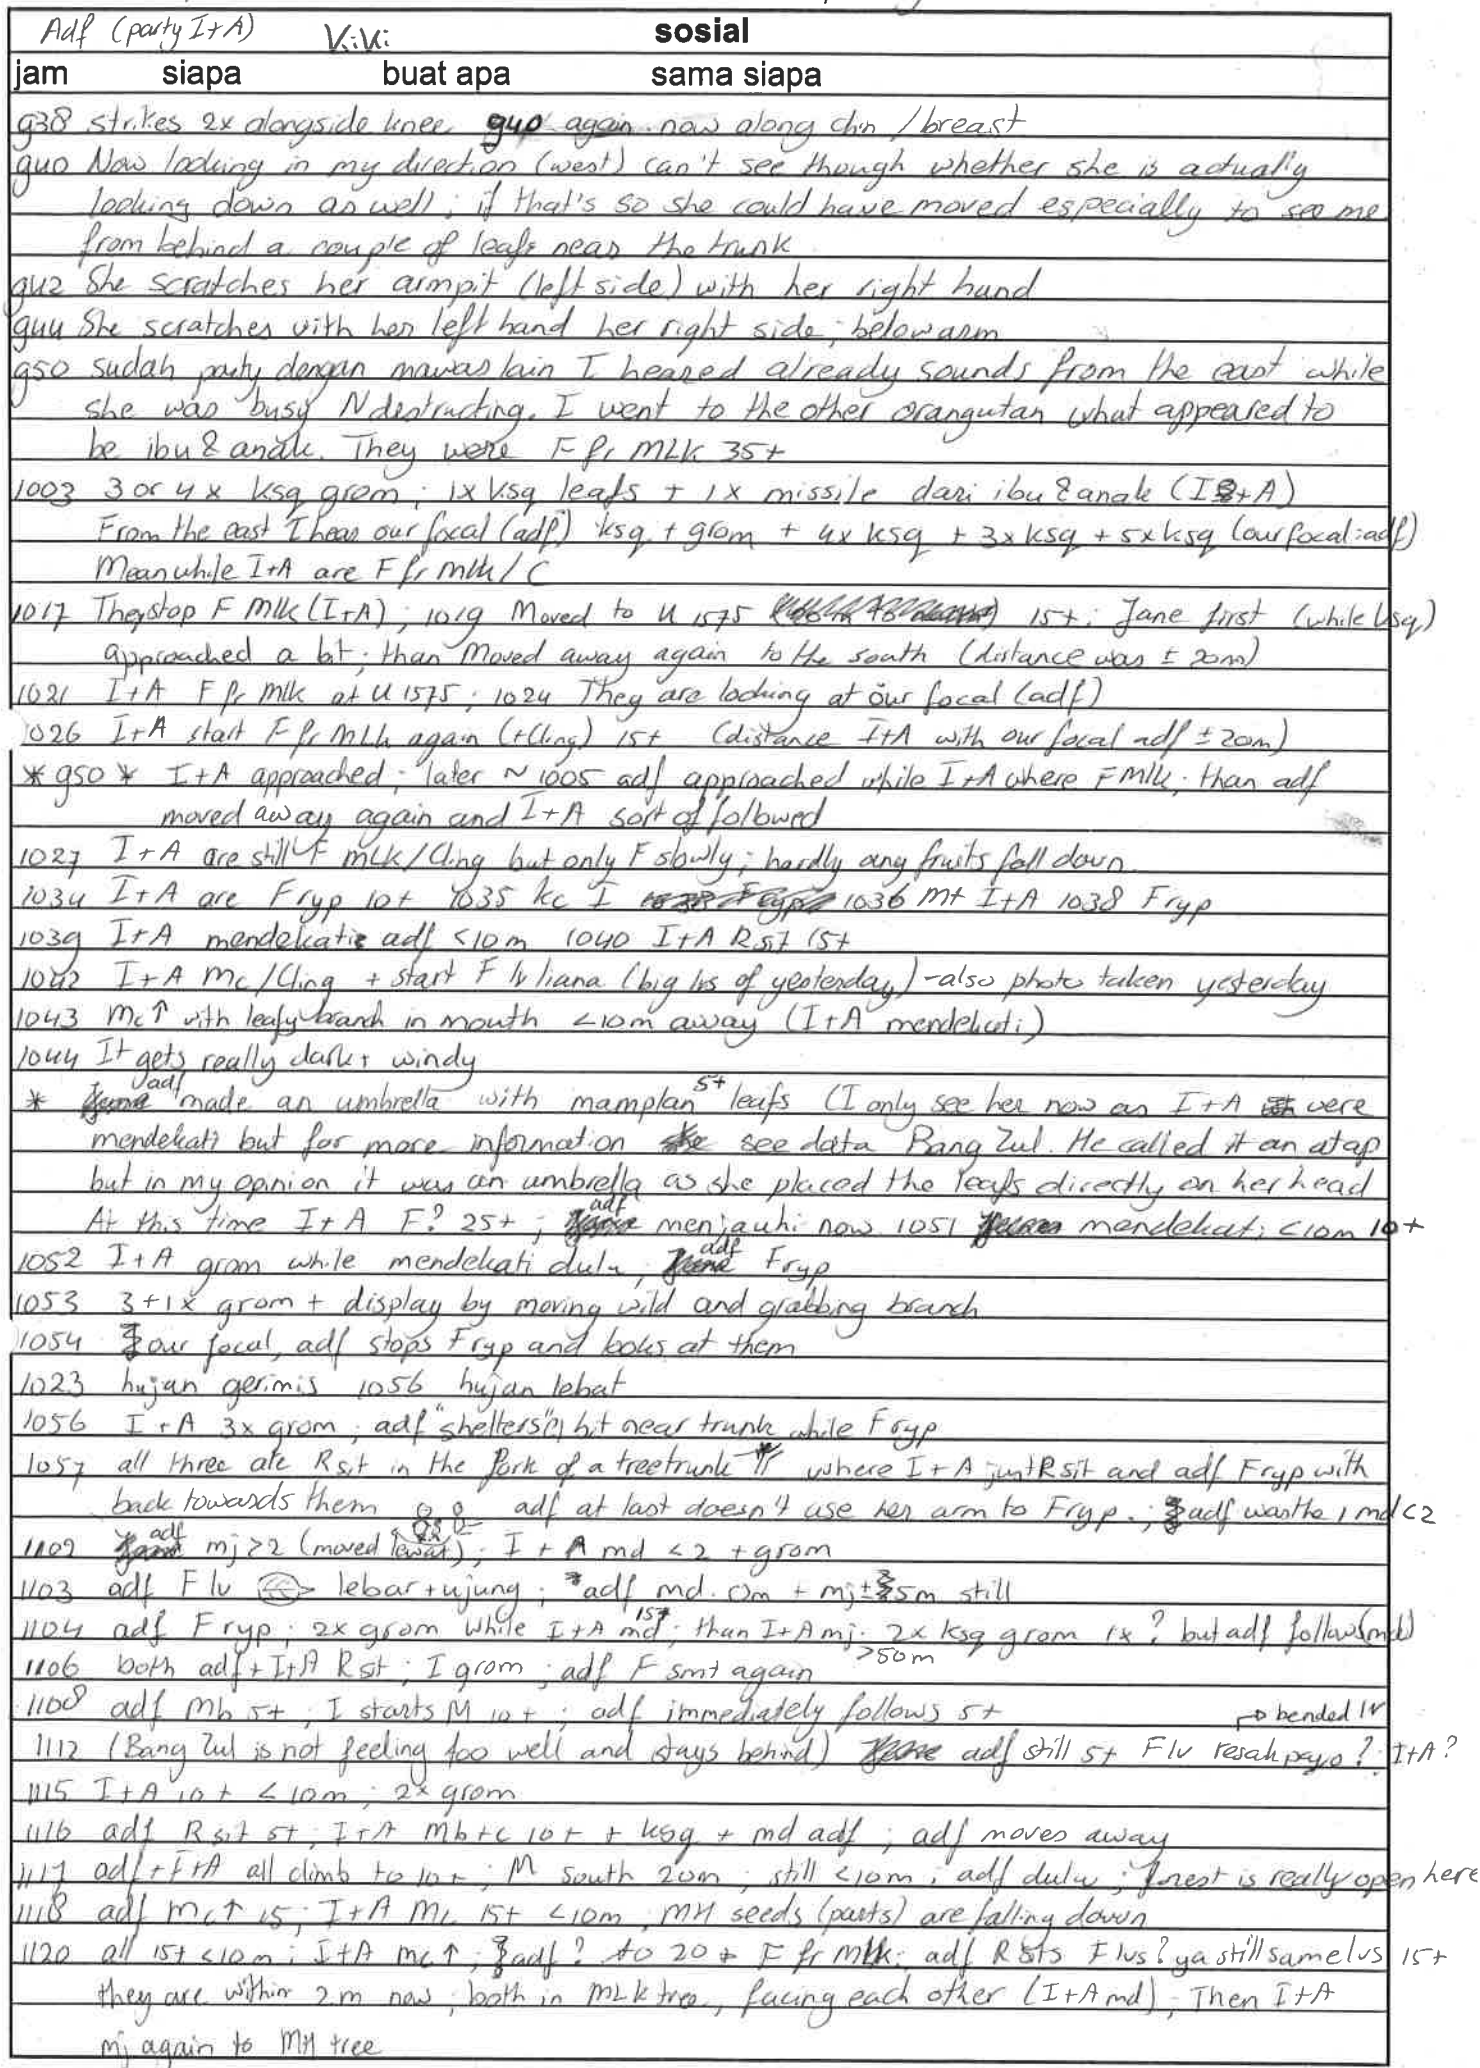 Adf (party I+A) KiKi sosial
jam siapa buat apa sama siapa
938 strikes 2x alongside knee 940 again now along chin / breast
940 Now looking in my direction (west) can't see though whether she is actually
looking down as well; if that's so she could have moved especially to see me
from behind a couple of leafs near the trunk
942 She scratches her armpit (left side) with her right hand
944 She scratches with her left hand her right side; below arm
950 sudah party dengan mawas lain I heared already sounds from the east while
she was busy N destructing. I went to the other orangutan what appeared to
be ibu & anak. They were F fr MLK 35+
1003 3 or 4x ksq grom; 1x ksq leafs + 1x missile dari ibu & anak (I+A)
From the east I hear our focal (adf) ksq + grom + 4x ksq + 3x ksq + 5x ksq (our focal: adf)
Meanwhile I+A are F fr mlk / C
1017 They stop F mlk (I+A); 1019 Moved to U 1575 15+; Jane first (while ksq)
approached a bit; than moved away again to the south (distance was ± 20m)
1021 I+A F fr mlk at U 1575; 1024 They are looking at our focal (adf)
1026 I+A start F fr MLk again (+Cling) 15+ (distance I+A with our focal adf ± 20m)
* 950 * I+A approached; later ~ 1005 adf approached while I+A where F Mlk; than adf
moved away again and I+A sort of followed
1027 I+A are still F MLK/Cling but only F slowly; hardly any fruits fall down
1034 I+A are Fryp 10+ 1035 kc I 1036 mt I+A 1038 Fryp
1039 I+A mendekati adf <10m 1040 I+A Rsit 15+
1042 I+A Mc/Cling + start F lv liana (big lvs of yesterday) - also photo taken yesterday
1043 Mc↑ with leafy branch in mouth <10m away (I+A mendekati)
1044 It gets really dark + windy
* adf made an umbrella with mamplan 5+ leafs (I only see her now as I+A were
mendekati but for more information see data Bang Zul. He called it an atap
but in my opinion it was an umbrella as she placed the leafs directly on her head
At this time I+A F? 25+; adf menjauhi now 1051 mendekati <10m 10+
1052 I+A grom while mendekati dulu, adf Fryp
1053 3+1x grom + display by moving wild and grabbing branch
1054 our focal, adf stops Fryp and looks at them
1023 hujan gerimis 1056 hujan lebat
1056 I+A 3x grom; adf "shelters" a bit near trunk while Fryp
1057 all three are Rsit in the fork of a treetrunk where I+A just Rsit and adf Fryp with
back towards them adf at last doesn't use her arm to Fryp.; adf was the 1 md <2
1102 adf mj >2 (moved lewat); I+A md <2 + grom
1103 adf Flv lebar + ujung; adf md. 0m + mj ± 5m still
1104 adf Fryp; 2x grom while I+A md 15+; than I+A mj. >50m 2x ksq grom 1x? but adf follows (md)
1106 both adf + I+A Rsit; I grom; adf F smt again
1108 adf Mb 5+; I starts M 10+; adf immediately follows 5+ → bended lv
1112 (Bang Zul is not feeling too well and stays behind) adf still 5+ Flv resah payo?; I+A?
1115 I+A 10+ <10m; 2x grom
1116 adf Rsit 5+; I+A Mb+c 10+ + ksq + md adf; adf moves away
1117 adf + I+A all climb to 10+; M south 20m; still <10m; adf dulu; forest is really open here
1118 adf mc↑ 15; I+A Mc 15+ <10m; MH seeds (parts) are falling down
1120 all 15+ <10m; I+A mc↑; adf? to 20+ F fr Mlk; adf Rsits Flvs? ya still same lvs 15+
they are within 2m now; both in MLK tree, facing each other (I+A md); Then I+A
mj again to MH tree